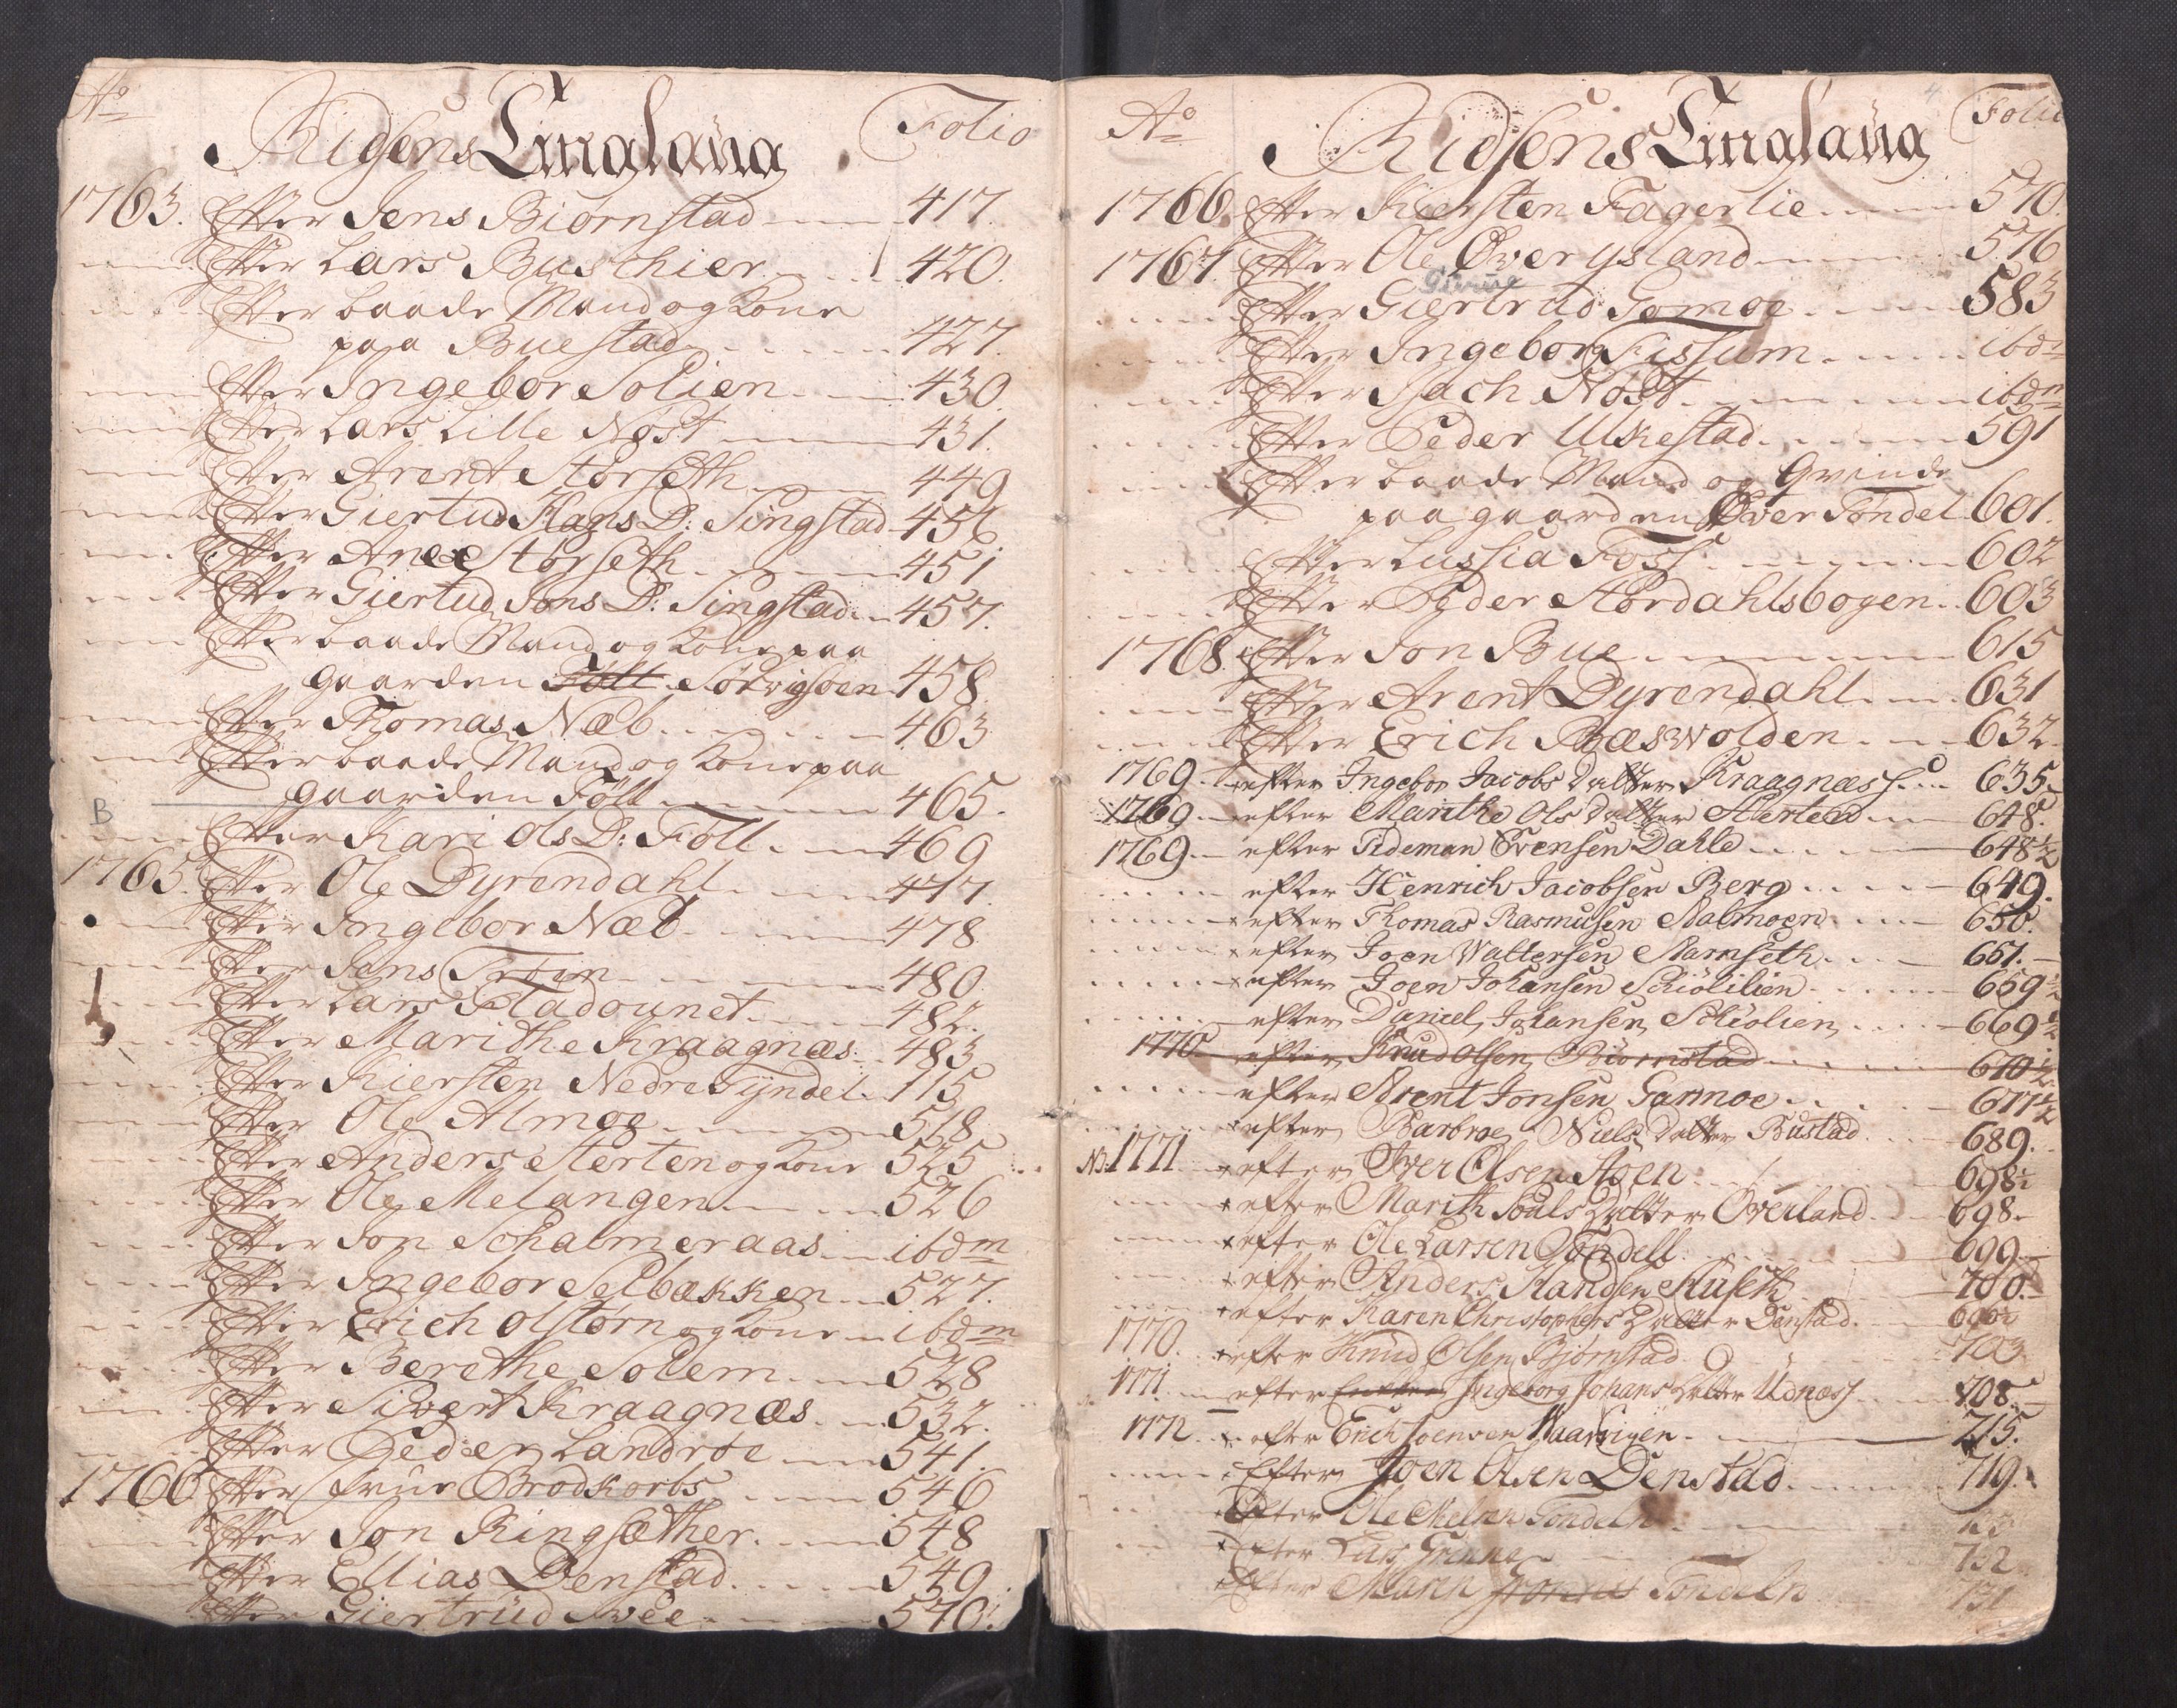 Ao Ridsens Tinglaug Folio
1763. Efter Jens Biørnstad 417.
Efter Lars Buschier 420.
Efter baade Mand og Kone
paa Buestad 427.
Efter Ingebor Solien 430.
Efter Lars Lille Nøst 431.
Efter Arent Størseth 449
Efter Giertud Hans D: Singstad 450
Efter Ane Størseth 451
Efter Giertud Jons D: Singstad 457.
Efter baade Mand og Kone paa
gaarden Föll Sørvigsoen 458.
Efter Thomas Næb 463
Efter baade Mand og Kone paa
gaarden Föll 465.
B
Efter Kari Ols D: Föll 469
1765. Efter Ole Dyrendahl 477.
Efter Ingebor Næb 478
Efter Jens Trøen 480.
Efter Lars Fladounet 482.
Efter Marithe Kraagnæs 483
Efter Kiersten Nedre Tyndel 115
Efter Ole Almoe 518.
Efter Anders Sterten og Kone 525
Efter Ole Melangen 526
Efter Jon Schalmeraas ibdm
Efter Ingebor Selbækken 527.
Efter Erich Olstørn og Kone ibdm
Efter Berethe Solem 528
Efter Sivert Kraagnæs 532.
Efter Peder Landrøe 541.
1766 Efter frue Brodkorbs 546
Efter Jon Ringsæther 548
Efter Ellias Denstad 549.
Efter Giertrüd Svee 570.
Ao Ridsens Tinglaug Folio
4
1766. Efter Kiersten Fagerlie 570.
1767. Efter Ole Øver ysland 576
Efter Giertrud Gomoe 583
Efter Ingeborg Fissum ibdm
Efter Isach Nøst ibdm
Efter Peder Ulkestad 591
Efter baade Mand og Qvinde
paa gaarden Øver Tøndel 601.
Efter Lussia Foss 602
Efter Peder Størdahlsbogen 603
1768. Efter Jon Bue 615
Efter Arent Dyrendahl 631
Efter Erich Bæswolden 632
1769. efter Ingebor Jacobs Datter Kraagnæss 635.
1769. efter Marithe Ols Datter Sterten 648.
1769. efter Tideman Evensen Dahle 648½
efter Henrich Jacobsen Berg 649.
efter Thomas Rasmusen Stalmoen 650.
efter Joen Waltersen Stamseth 651.
efter Joen Johansen Schiølilien 669½
efter Daniel Johansen Schiølien 669½
1770. efter Knud Olsen Biørnstad 670½
efter Arent Jonsen Garmoe 677½
efter Barbroe Niels Datter Bustad 689.
NB. 1771 efter Iver Olsen Moen 698.
efter Marith Pouls Datter Overland 698.
efter Ole Larsen Tøndell 699.
efter Anders Husseth 700.
efter Karen Christophers Datter Denstad
1770. efter Knud Olsen Bjørnstad 703
1771. efter Ingeborg Johans Datter Udnæss 708.
1772. efter Erich Joensen Waarvigen 715.
Efter Joen Olsen Denstad 719.
Efter Ole Tøndeln
Efter Lars Grønne 732
Efter Marith Tøndeln 731